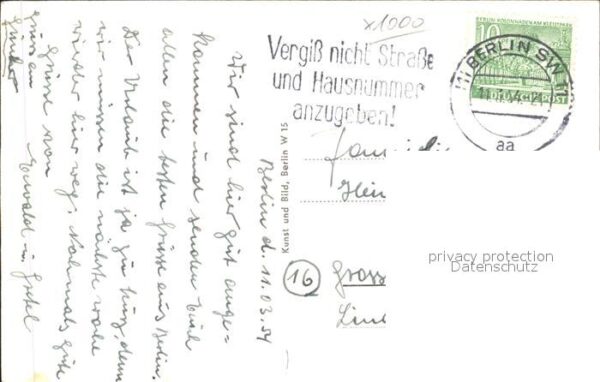 x1000
Vergiß nicht Straße
und Hausnummer
anzugeben!
BERLIN KOLONNADEN AM KLEISTPARK
10
DEUTSCHE POST
(1) BERLIN SW 11
11.3.54.-21
aa
Berlin d. 11.03.54
Wir sind hier gut ange-
kommen und senden Euch
allen die besten Grüsse aus Berlin.
Der Urlaub ist ja zu kurz, denn
wir müssen die nächste Woche
wieder hier weg. Nochmals gute
Grüsse von
Ewald u.
Gruss an
Günter
Kunst und Bild, Berlin W 15
Familie
Hein
16
Gross
Lind
privacy protection
Datenschutz